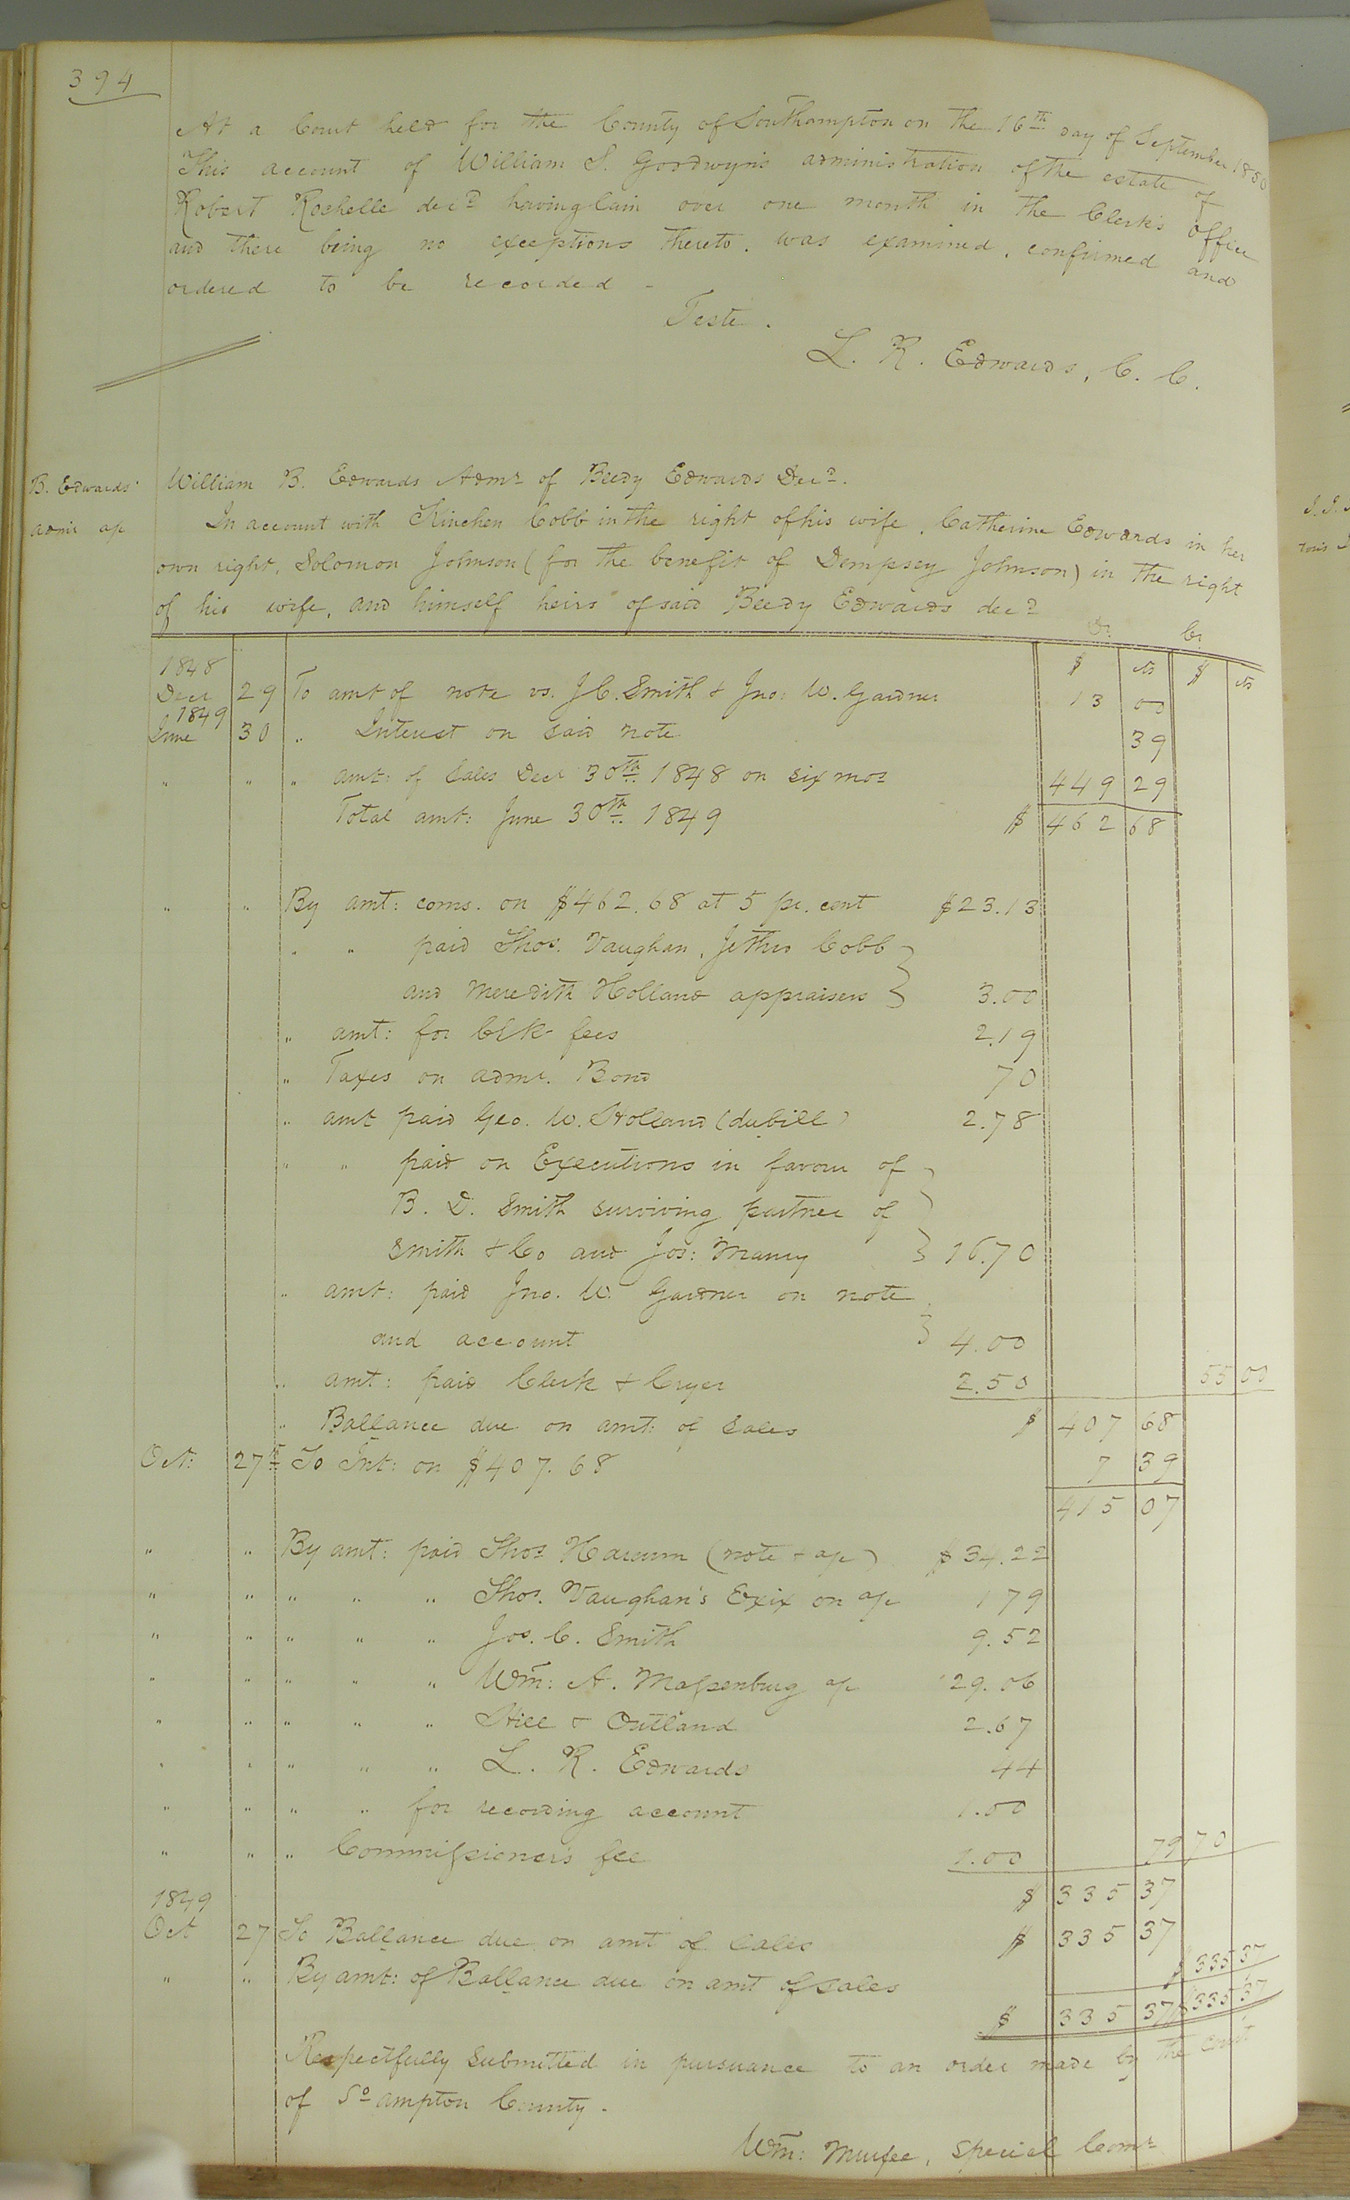 394
At a Court held for the County of Southampton on the 16th day of September 1850
This account of William S. Goodwyn's administration of the estate of
Robert Rochelle decd having lain over one month in the Clerk's office
and there being no exceptions thereto, was examined, confirmed and
ordered to be recorded -
Teste.
L. R. Edwards, C. C.
B. Edwards'
Admr ap
William B. Edwards Admr of Beedy Edwards Decd.
In account with Kinchen Cobb in the right of his wife, Catherine Edwards in her
own right, Solomon Johnson (for the benefit of Dempsey Johnson) in the right
of his wife, and himself heirs of said Beedy Edwards decd
Dr Cr
$ cts $ cts
1848
Decr 29 To amt of note vs. J C. Smith & Jno: W. Gardner 13 00
1849
June 30 " Interest on said note 39
" " " amt: of sales Decr 30th 1848 on six mos 449 29
Total amt: June 30th 1849 $ 462 68
" " By amt: coms. on $462.68 at 5 pr. cent $23.13
" " paid Thos. Vaughan, Jethro Cobb
and Meredith Holland appraisers 3.00
" amt: for Clk fees 2.19
" Taxes on admr. Bond 70
" amt paid Geo. W. Holland (dubill) 2.78
" " paid on Executions in favour of
B. D. Smith surviving partner of
Smith & Co and Jos: Maury 16.70
" amt: paid Jno. W. Gardner on note
and account 4.00
" amt: paid Clerk & Cryer 2.50 55 00
" Ballance due on amt: of sales $ 407 68
Oct: 27th To Int: on $407.68 7 39
415 07
" " By amt: paid Thos Harum (note & ap) $34.22
" " " " " Thos. Vaughan's Exix on ap 1 79
" " " " " Jos. C. Smith 9.52
" " " " " Wm: A. Massenburg ap 29.06
" " " " " Hill & Outland 2.67
" " " " " L. R. Edwards 44
" " " " for recording account 1.00
" " " Commissioner's fee 1.00 79 70
$ 335 37
1849
Oct 27 To Ballance due on amt of sales $ 335 37
" " By amt: of Ballance due on amt of sales $ 335 37
$ 335 37 $ 335 37
Respectfully submitted in pursuance to an order made by the court
of So ampton County.
Wm: Murfee, Special Comr